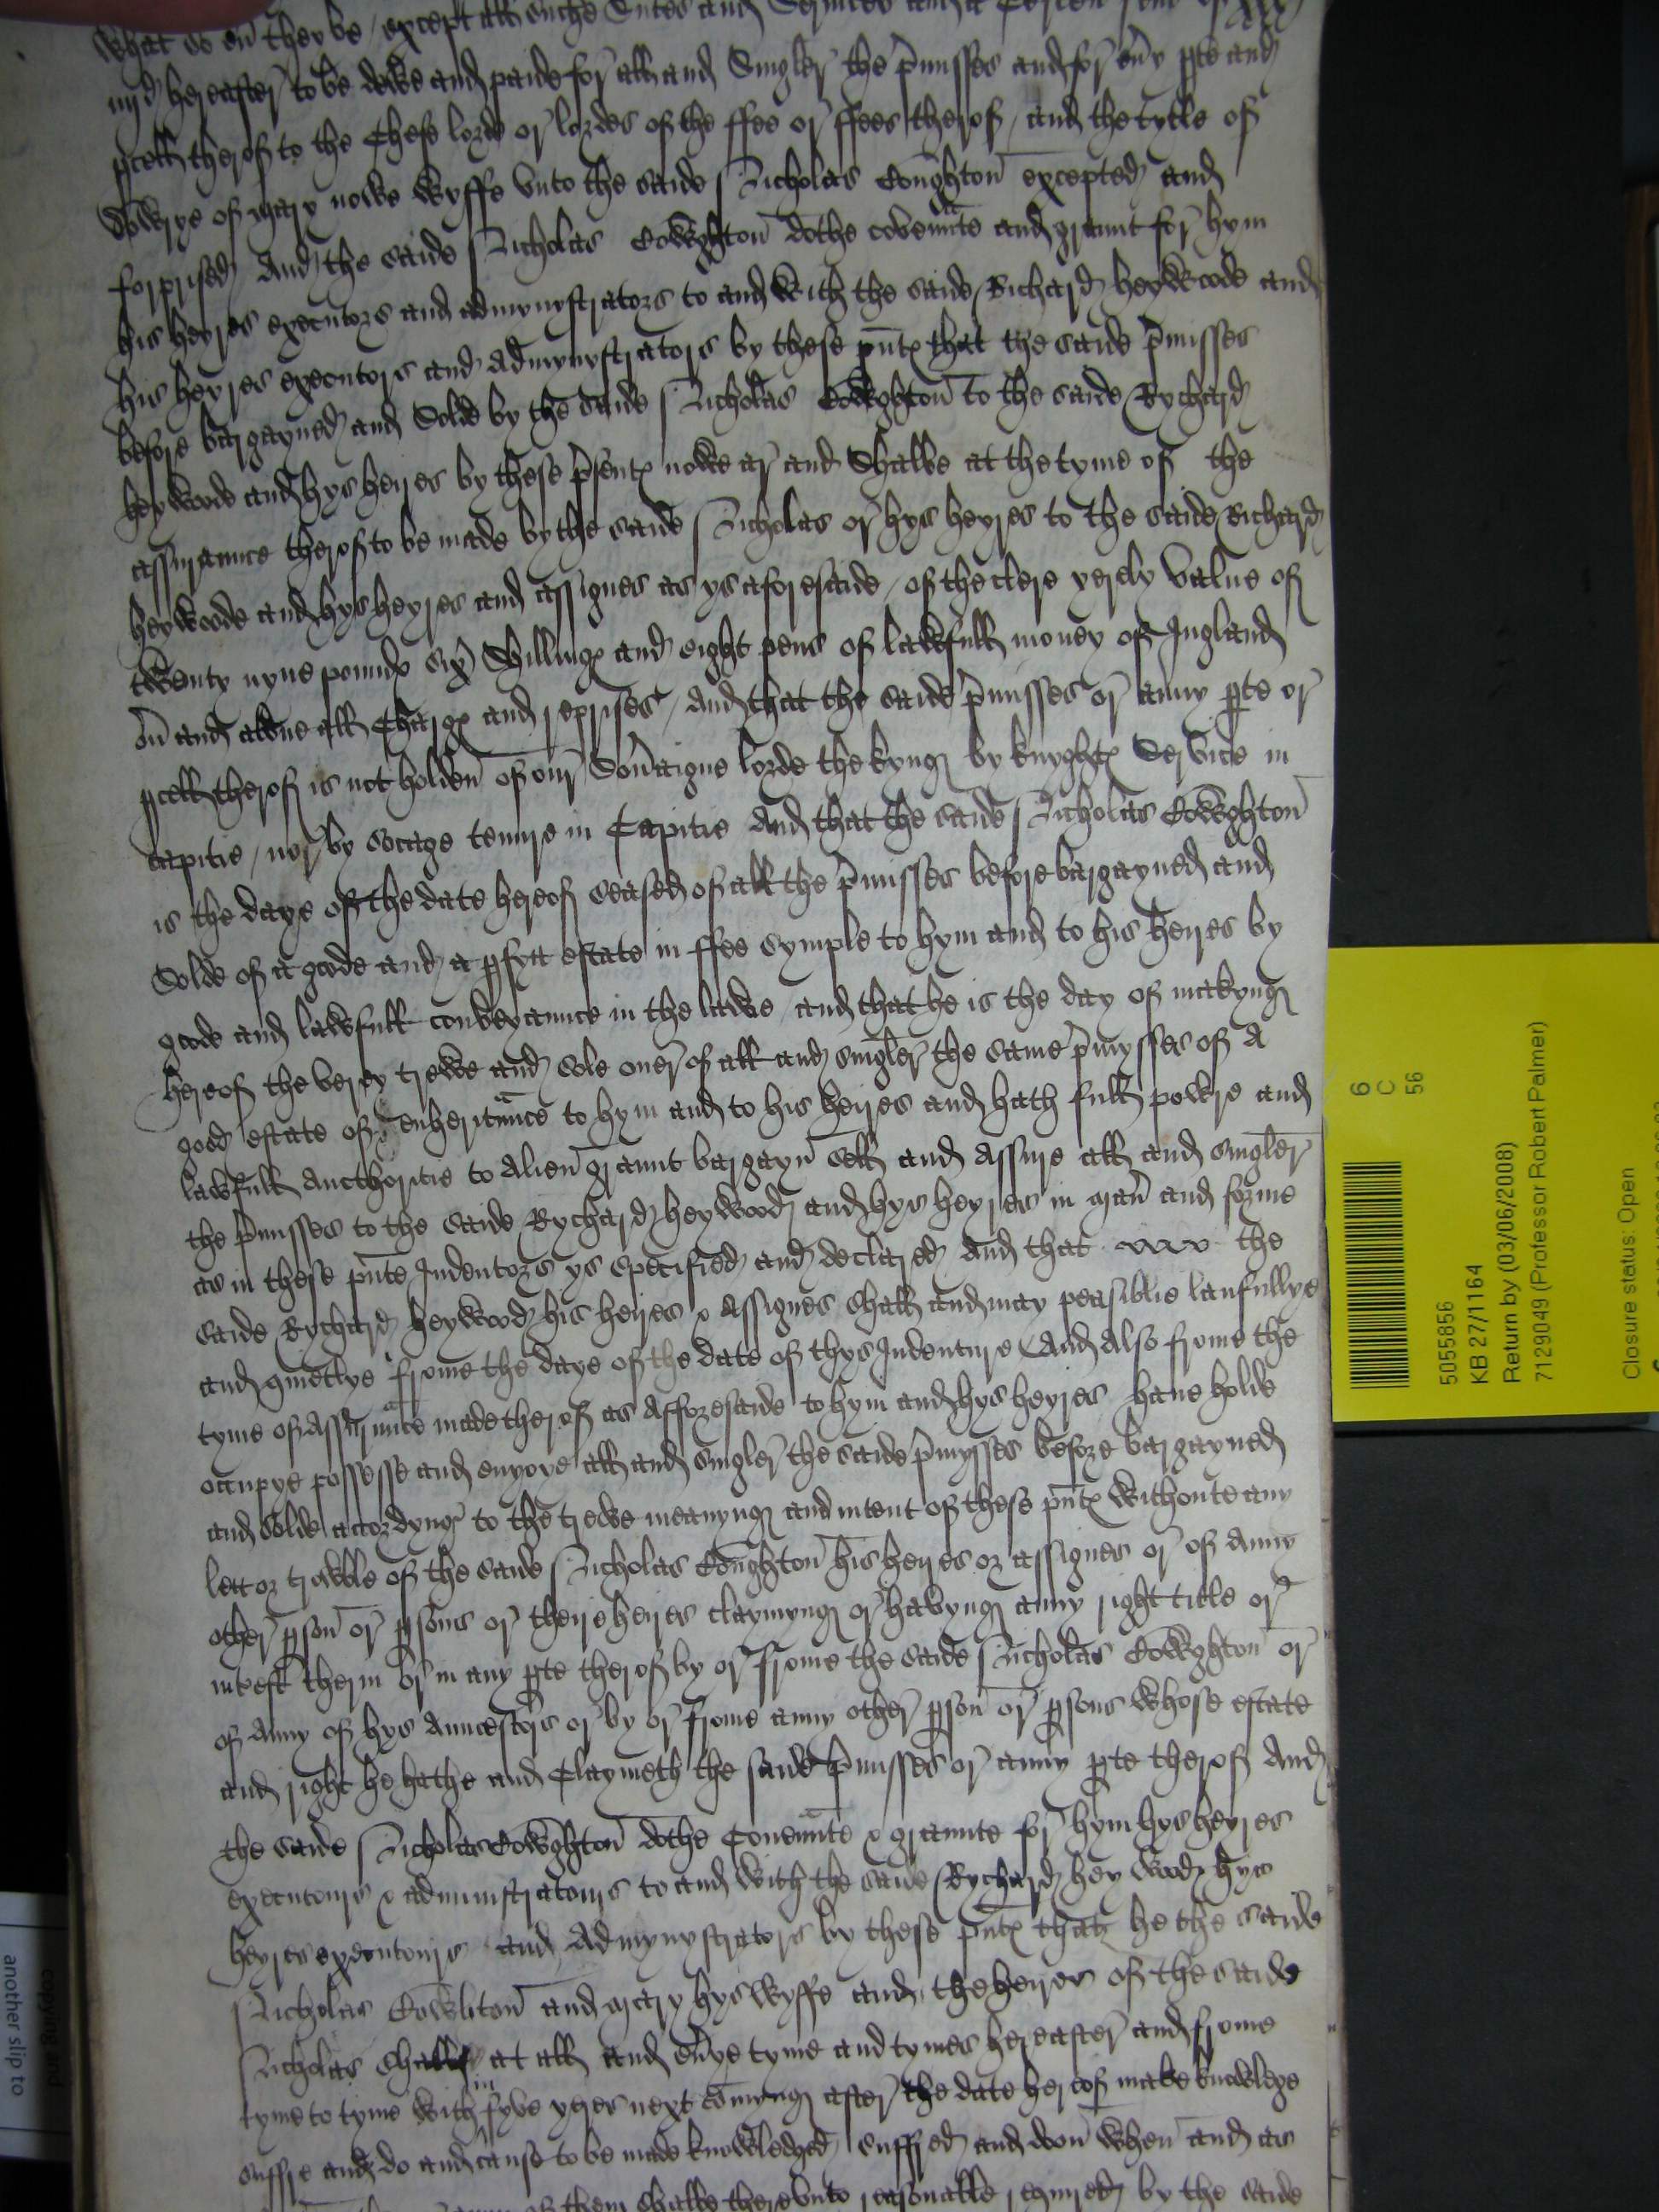 what so eũ they be / except all suche Sutes and Servyces and a certen rent of xxx
iiij d hereafter to be dewe and paide for all and Singler the p̃misses and for eũy pte and
pcell therof to the Chefe lorde or lordes of the ffee or ffees therof / and the tytle of
dowrye of mary nowe wyffe unto the saide Nicholas Coughton excepted and
forprised And the saide Nicholas Cowghton dothe covennte and graunt for hym
his heyres executors and admynystrators to and with the saide Richard heywoode and
his heyres executors and admynystrators by these pñtx that the saide p̃misses
before bargayned and Solde by the saide Nicholas Cowghton to the saide Rychard
heywoode and hys heires by these p̃sentx nowe ar and Shalbe at the tyme of the
assurance therof to be made by the saide Nicholas or hys heyres to the saide Richard
heywoode and hys heyres and assignes as ys aforesaide / of the clere yerely value of
twenty nyne poundx six Shillingx and eight pens of lawfull money of Ingland
oũ and above all Chargx and reprises / And that the saide p̃misses or anny pte or
pcell therof is not holden of our Soũaigne lorde the kyng by knyghtx Service in
capitie / nor by socage tenure in Capitie And that the saide Nicholas Cowghton
is the daye of the date hereof seased of all the p̃misses before bargayned and
Solde of a goode and a pfytt estate in ffee symple to hym and to his heires by
goode and lawfull conveyaunce in the lawe / and that he is the day of makyng
hereof the verey trewe and sole oner of all and singler the same p̃mysses of A
good estate of enheritaunce to hym and to his heires and hath full powre and
lawfull Aucthoritie to Alien graunt bargayn sell and Assure all and singler
the p̃misses to the saide Rychard heywood and hys heyres in mañ and forme
as in these pñte Indentors ys specified and declared And that the
saide Rychard heywood his heires & Assignes shall and may peasiblie laufullye
and quietlye frome the daye of the date of thys Indenture And Also frome the
tyme of Assurance made therof as Afforesaide to hym and hys heyres have holde
occupye possesse and enyoye all and singler the saide p̃mysses before bargayned
and Solde accordyng to the trewe meanyng and intent of these pñtx withoute any
lett or troble of the saide Nicholas Coughton his heires or assignes or of Anny
other pson or psons or theire heires claymyng or havyng anny right title or
intrest therin or in any pte therof by or frome the saide Nicholas Cowghton or
of Anny of hys Auncestors or by or frome anny other pson or psons whose estate
and right he hathe and Claymeth the saide p̃misses or anny pte therof And
the saide Nicholas Cowghton dothe Covennte & graunte for hym hys heyres
executours & administratours to and with the saide Rychard hey wood hys
heyres executours and Admynystrators by these pñtx that he the saide
Nicholas Cowhton and mary hys wyffe and the heires of the saide
Nicholas shall at all and eũye tyme and tymes hereafter and frome
tyme to tyme with in fyve yeres next comyng after the date hereof make knowlege
suffre and do and cause to be made knowledged suffred and doon when and as
of them shalbe thereunto reasonable required by the saide
6
C
56
5055856
KB 27/1164
Return by (03/06/2008)
7129049 (Professor Robert Palmer)
Closure status: Open
copying and
another slip to